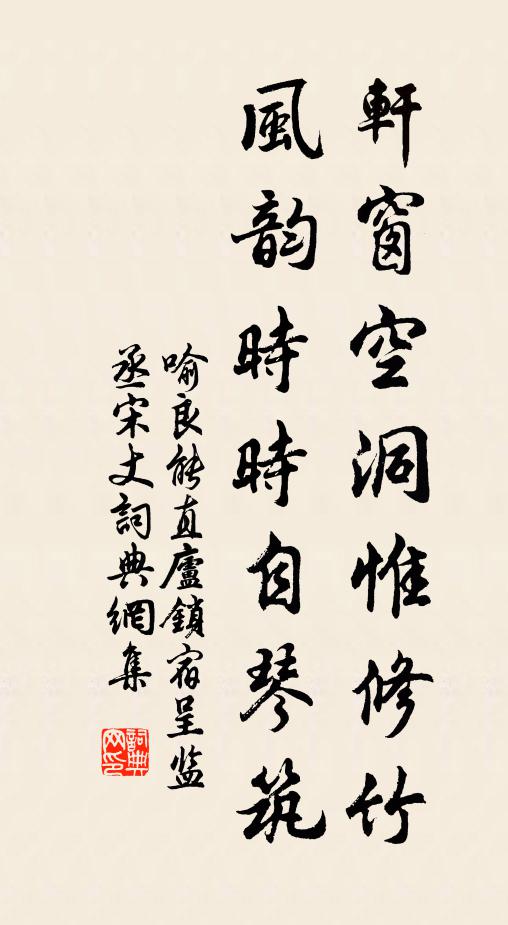 軒窗空洞惟修竹
風韵時時自琴筑
喻良能直廬鎖宿呈监
丞宋丈詞典網集
詞典网印